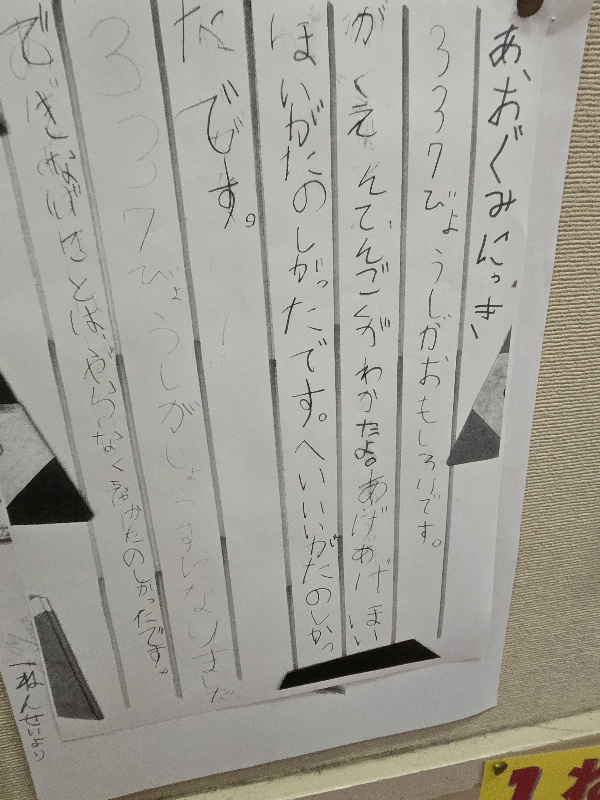 あ、おぐみにっき
337びょうしがおもしろいです。
がくえんてんごくがわかたよ。あげあげほいい
ほいがたのしがったです。へいいいがたのしかっ
たでです。
337びょうしがじょうずになりました
とばやらなくちゃがたのしかったです。
一ねんせいより
1ね